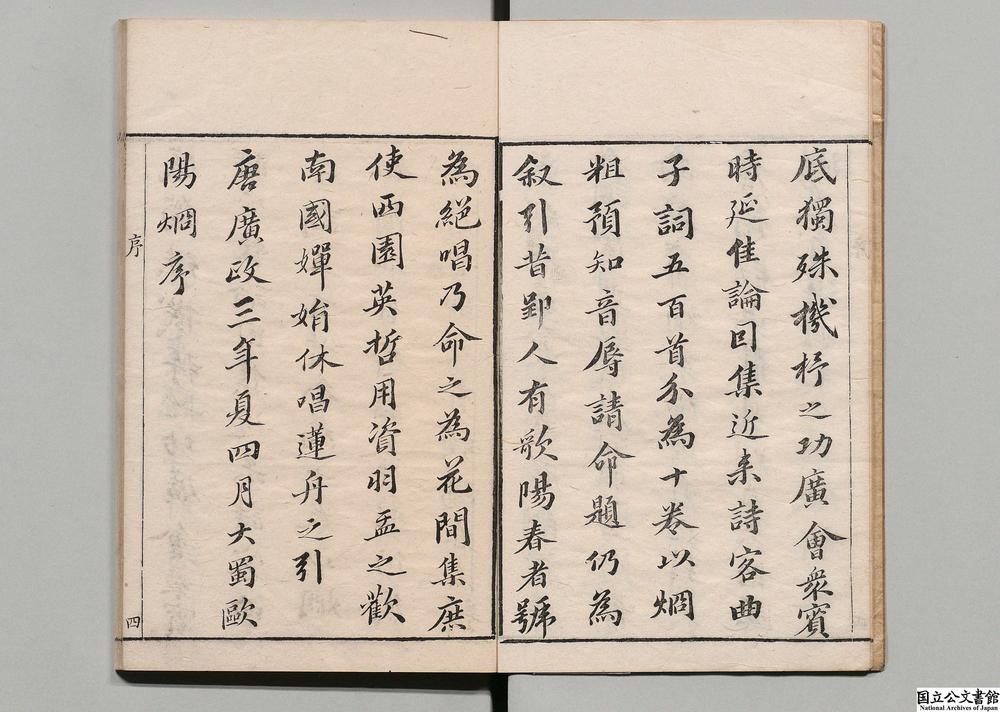 底獨殊機杼之功廣會衆賓
時延佳論因集近来詩客曲
子詞五百首分為十卷以烱
粗預知音辱請命題仍為
叙引昔郢人有歌陽春者號
為絕唱乃命之為花間集庶
使西園英哲用資羽盃之歡
南國嬋娟休唱蓮舟之引
唐廣政三年夏四月大蜀歐
陽烱序
序
四
国立公文書館
National Archives of Japan